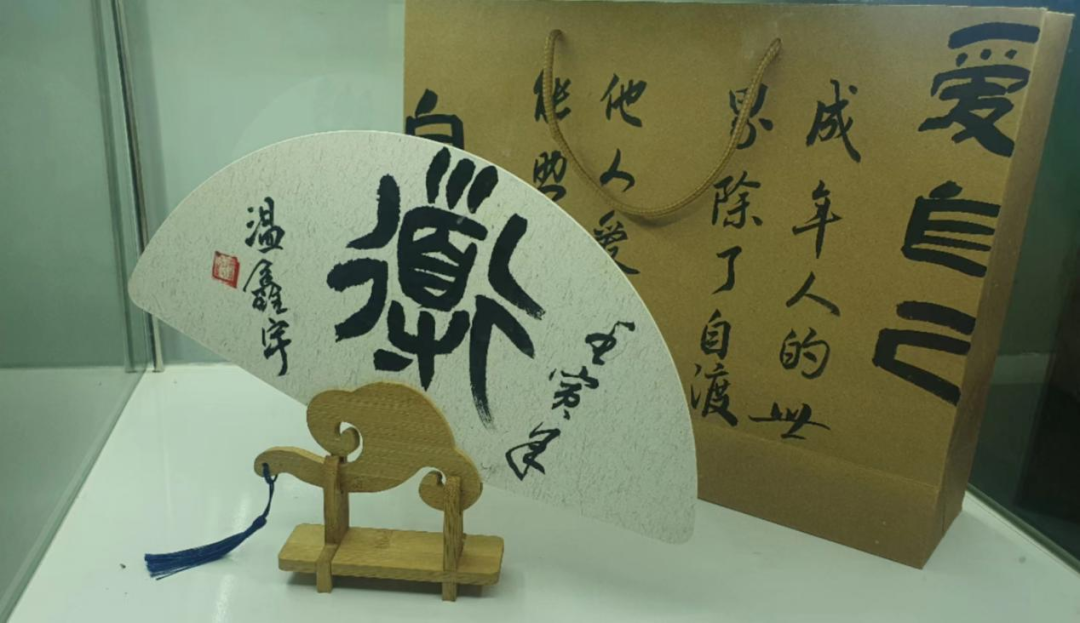 爱自己
成年人的世
界除了自渡
他人爱
能助
自
壬寅年
道
温鑫宇